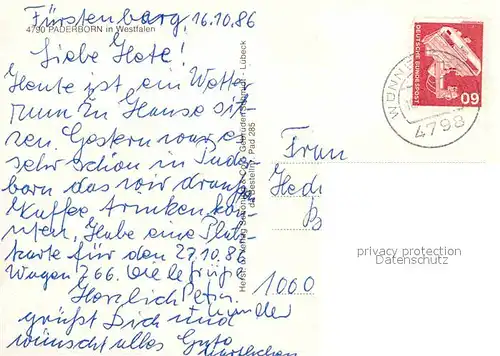 Fürstenberg, 16.10.86
4790 PADERBORN in Westfalen
Liebe Hete!
Heute ist ein Wetter
zum zu Hause sit-
zen. Gestern war es
sehr schön in Pader-
born das wir drauß
Kaffee trinken kon-
nten. Habe eine Platz-
karte für den 27.10.86
Wagen 266. Die
Herzlich
grüßt Dich und
wünscht alles Gute
Pad 285
Lübeck
DEUTSCHE BUNDESPOST
60
WÜNN
4798
Frau
Hedi
B
1000
privacy protection
Datenschutz